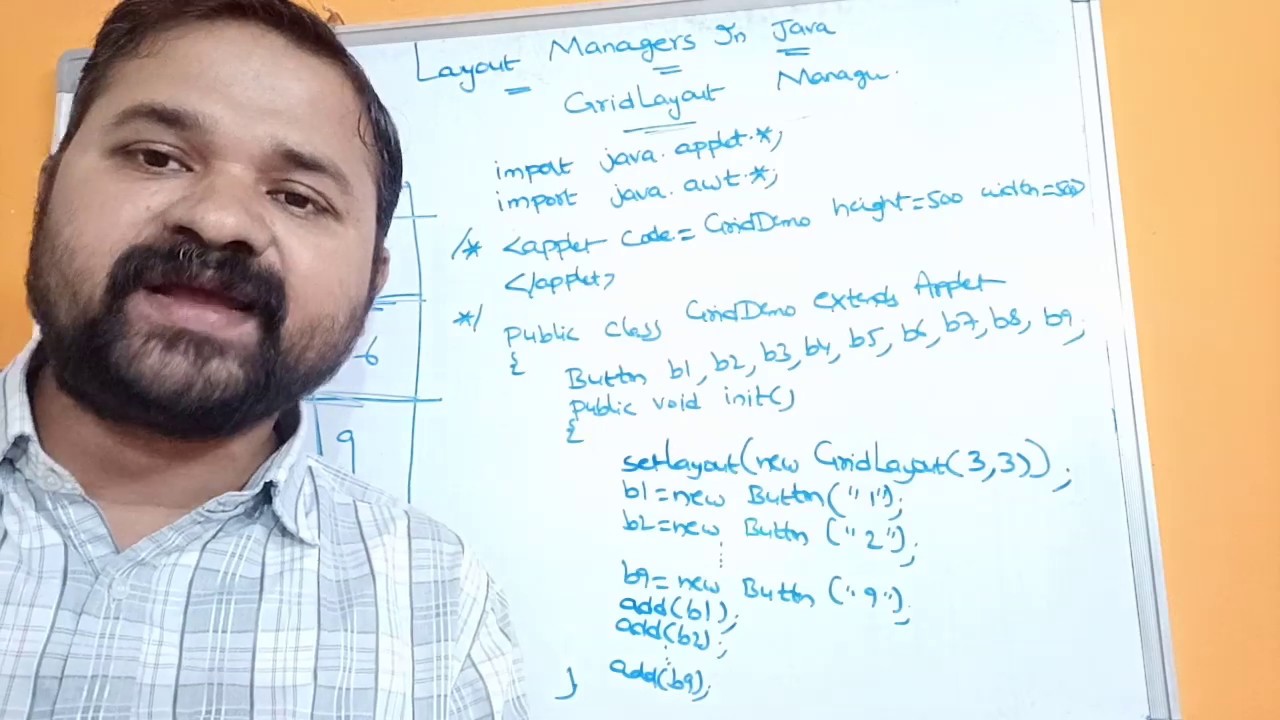 Layout Managers In Java
GridLayout Manager.
import java.applet.*;
import java.awt.*;
/* <applet code=GridDemo height=500 width=500
</applet>
*/ public class GridDemo extends Applet
{
Button b1, b2, b3, b4, b5, b6, b7, b8, b9;
public void init()
{
setLayout(new GridLayout(3,3));
b1=new Button("1");
b2=new Button("2");
b9=new Button("9");
add(b1);
add(b2);
add(b9);
}
6
9